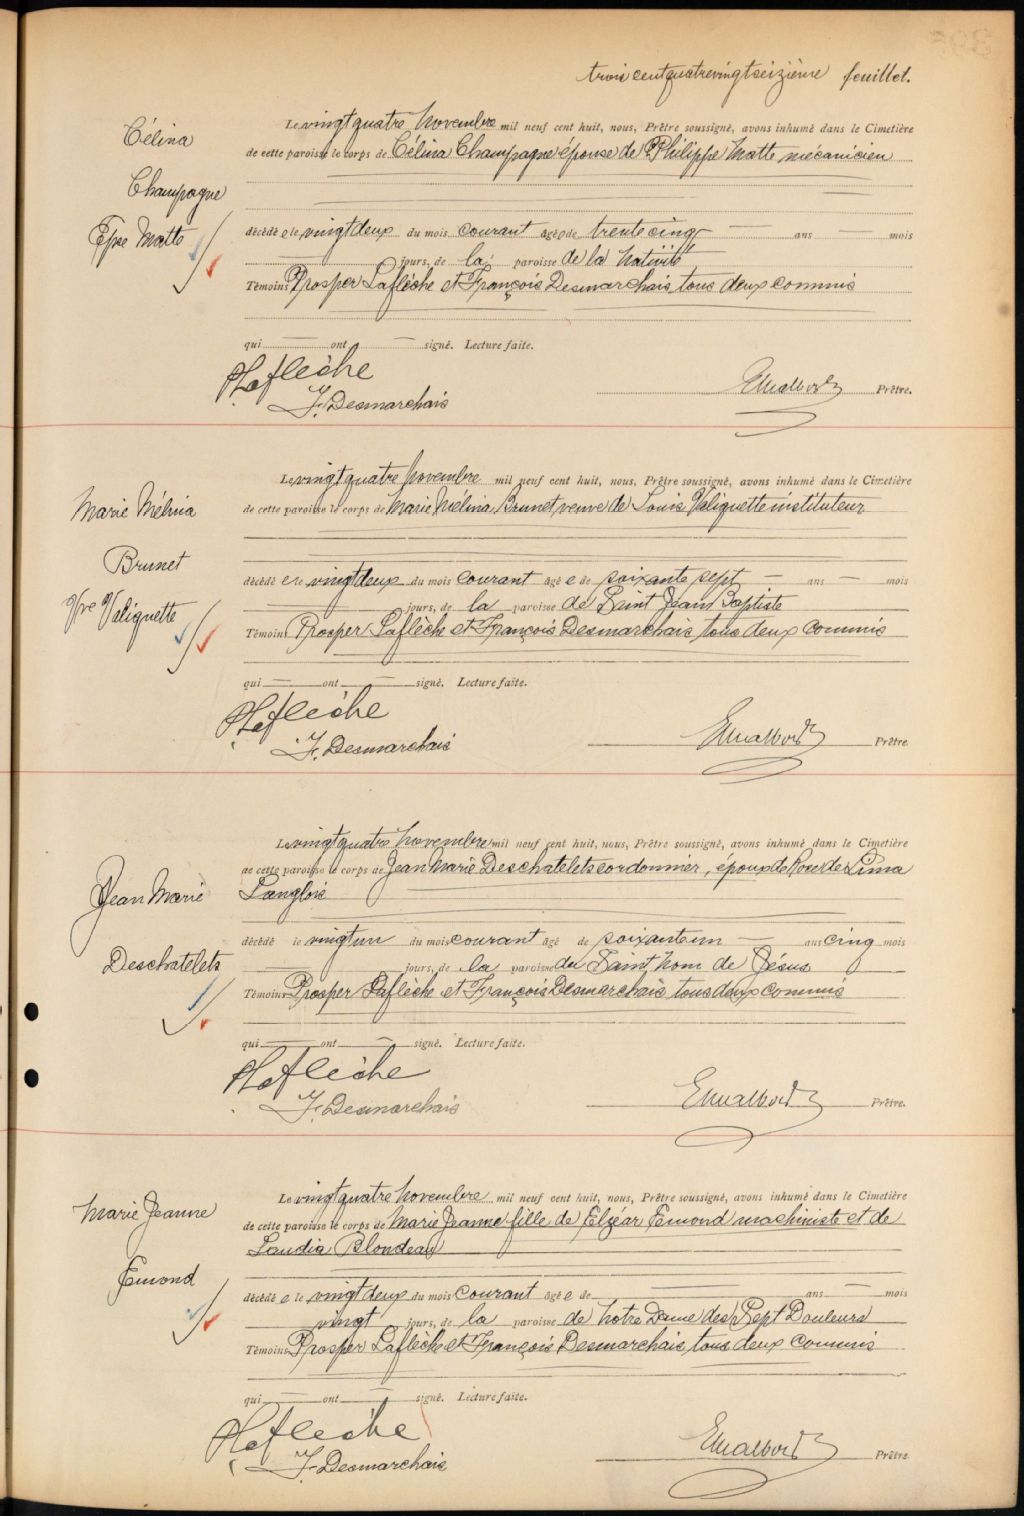 trois cent quatrevingt seizième feuillet.
Célina
Champagne
Épse Matte
Le vingt quatre Novembre mil neuf cent huit, nous, Prêtre soussigné, avons inhumé dans le Cimetière
de cette paroisse le corps de Célina Champagne épouse de Philippe Matte mécanicien
décédé e le vingt deux du mois courant âgé e de trente cinq — ans — mois
— jours, de la paroisse de la Nativité
Témoins Prosper Laflèche et François Desmarchais tous deux commis
qui — ont — signé. Lecture faite.
P Laflèche
F. Desmarchais
Prêtre.
Marie Mélina
Brunet
Vve Valiquette
Le vingt quatre Novembre mil neuf cent huit, nous, Prêtre soussigné, avons inhumé dans le Cimetière
de cette paroisse le corps de Marie Mélina Brunet veuve de Louis Valiquette instituteur
décédé e le vingt deux du mois courant âgé e de soixante sept — ans — mois
jours, de la paroisse de Saint Jean Baptiste
Témoins Prosper Laflèche et François Desmarchais tous deux commis
qui — ont — signé. Lecture faite.
P Laflèche
F. Desmarchais
Prêtre.
Jean Marie
Deschatelets
Le vingt quatre Novembre mil neuf cent huit, nous, Prêtre soussigné, avons inhumé dans le Cimetière
de cette paroisse le corps de Jean Marie Deschatelets cordonnier, époux de Rose de Lima
Langlois
décédé le vingt un du mois courant âgé de soixante un — ans cinq mois
— jours, de la paroisse du Saint Nom de Jésus
Témoins Prosper Laflèche et François Desmarchais tous deux commis
qui — ont — signé. Lecture faite.
P Laflèche
F. Desmarchais
Prêtre.
Marie Jeanne
Émond
Le vingt quatre Novembre mil neuf cent huit, nous, Prêtre soussigné, avons inhumé dans le Cimetière
de cette paroisse le corps de Marie Jeanne fille de Elzéar Émond machiniste et de
Blondeau
décédé e le vingt deux du mois courant âgé e de — ans — mois
vingt jours, de la paroisse de Notre Dame des Sept Douleurs
Témoins Prosper Laflèche et François Desmarchais tous deux commis
qui — ont — signé. Lecture faite.
P Laflèche
F. Desmarchais
Prêtre.